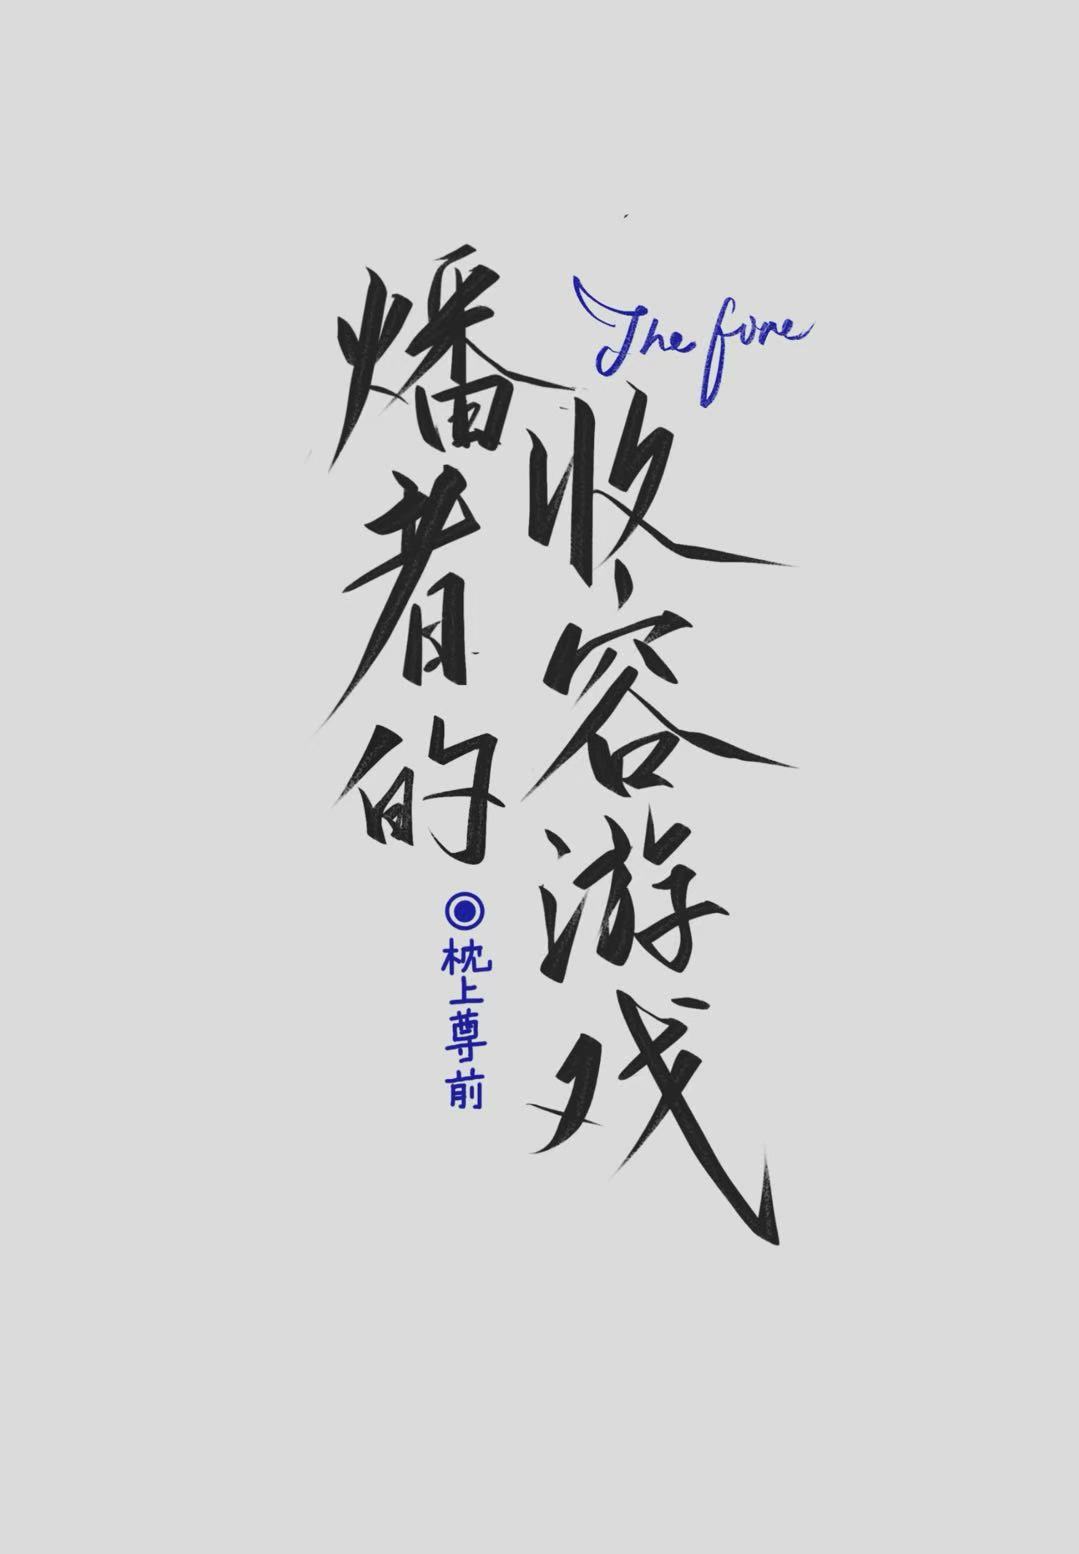 燔者的
收容游戏
The fore
枕上尊前